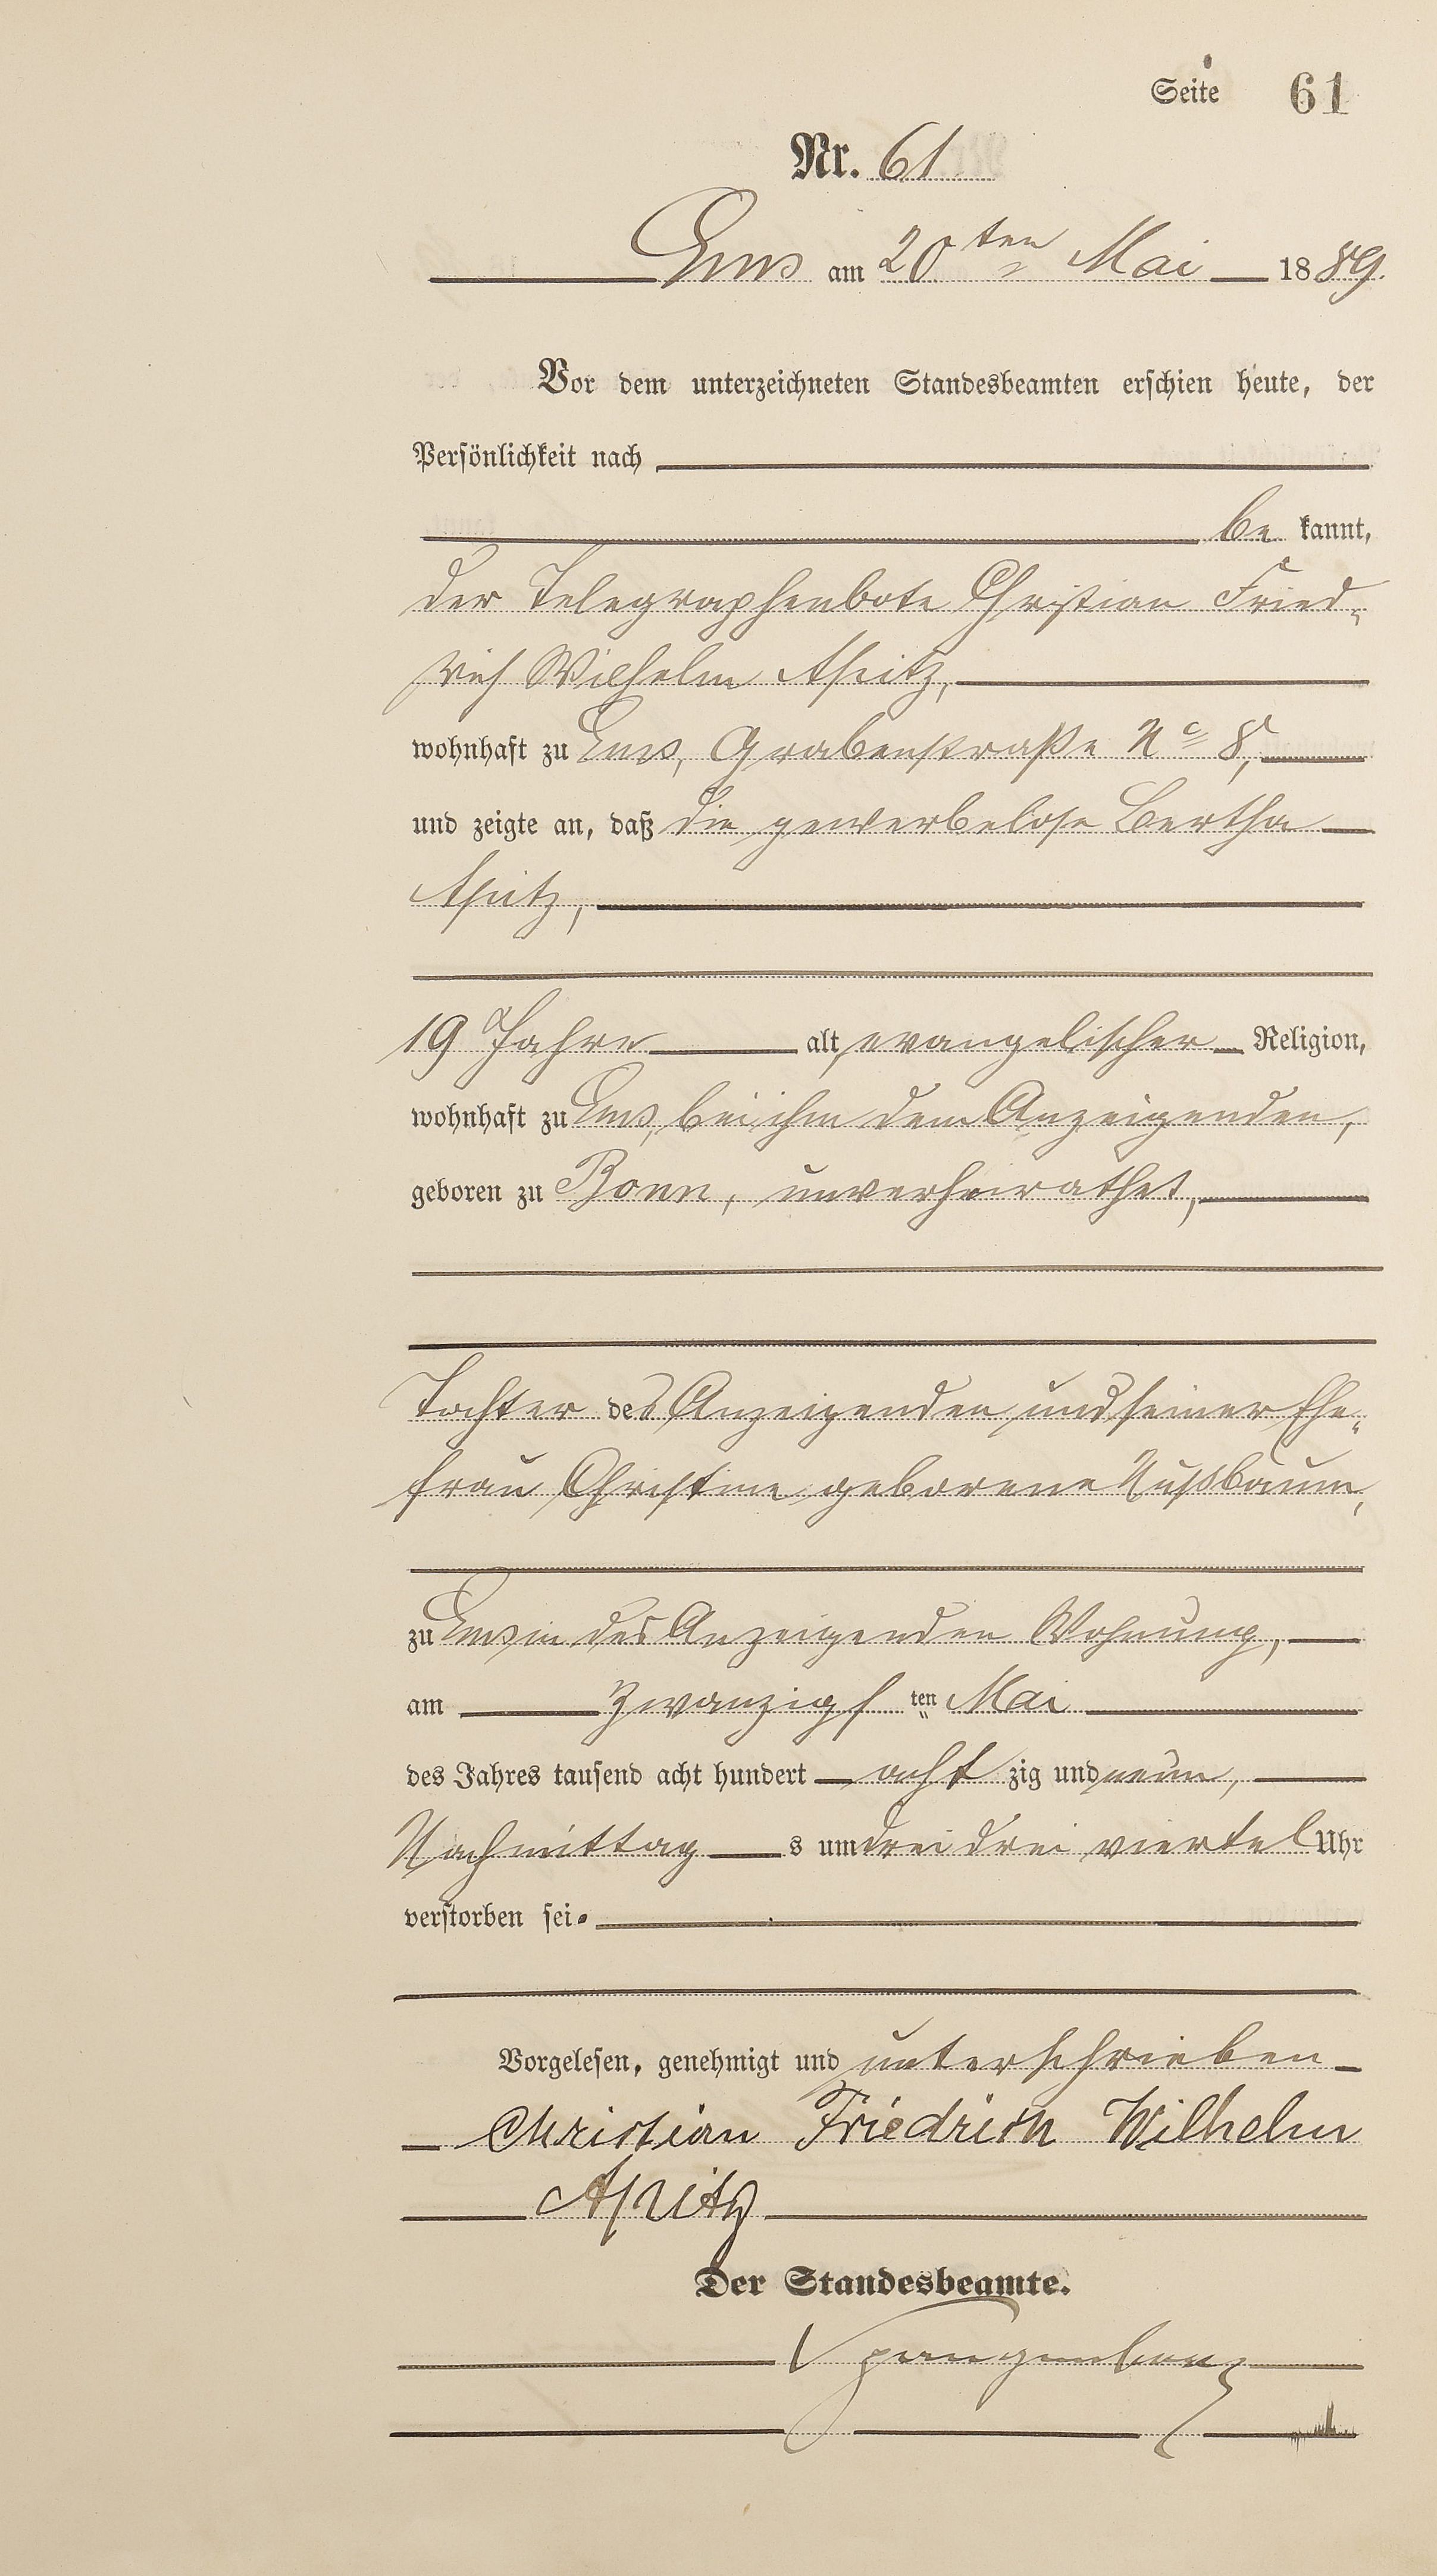 Seite 61
Nr. 61
Ems am 20ten Mai 1889.
Vor dem unterzeichneten Standesbeamten erschien heute, der
Persönlichkeit nach
be kannt,
der Telegraphenbote Christian Fried-
rich Wilhelm Apitz,
wohnhaft zu Ems, Grabenstraße No 8,
und zeigte an, daß die gewerbelose Bertha
Apitz,
19 Jahre alt, evangelischer Religion,
wohnhaft zu Ems, bei ihm dem Anzeigenden,
geboren zu Bonn, unverheirathet,
Tochter des Anzeigenden und seiner Ehe-
frau Christine geborene Nußbaum,
zu Ems in des Anzeigenden Wohnung,
am zwanzigsten Mai
des Jahres tausend acht hundert acht zig und neun,
Nachmittag s um drei drei viertel Uhr
verstorben sei.
Vorgelesen, genehmigt und unterschrieben
Christian Friedrich Wilhelm
Apitz
Der Standesbeamte.